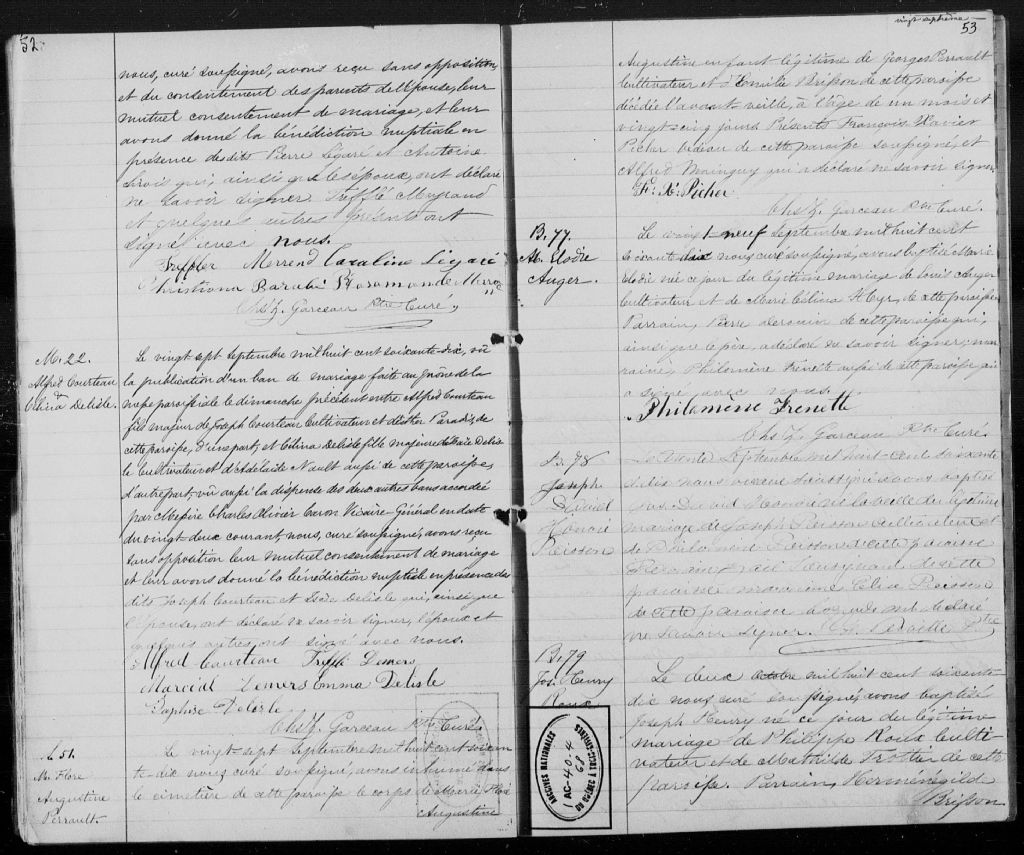 52
nous, curé soussigné, avons reçu sans opposition
et du consentement des parents de l'Epouse, leur
mutuel consentement de mariage, et leur
avons donné la bénédiction nuptiale en
présence desdits Pierre Légaré et Antoine
qui, ainsi que les époux, ont déclaré
ne savoir signer. Trefflé Mergrand
et quelques autres présents ont
signé avec nous.
Treffler Merrend Caroline Légaré
Christiana Barabé Rosamonde
Chs Z. Garceau Ptre Curé.
M. 22.
Alfred Courteau
&
Célina Delisle.
Le vingt sept Septembre mil huit cent soixante-dix, vu
la publication d'un ban de mariage fait au prône de la
messe paroissiale le dimanche précédent entre Alfred Courteau
fils majeur de Joseph Courteau Cultivateur et d'Esther Paradis, de
cette paroisse, d'une part, et Célina Delisle fille majeure d'Isaïe Delis-
le Cultivateur et d'Adelaïde Nault aussi de cette paroisse,
d'autre part, vu aussi la dispense des deux autres bans accordée
par Messire Charles Olivier Caron Vicaire Général en date
du vingt-deux courant, nous, curé soussigné, avons reçu
sans opposition leur mutuel consentement de mariage
et leur avons donné la bénédiction nuptiale en presence des
dits Joseph Courteau et Isaïe Delisle qui, ainsi que
l'épouse, ont déclaré ne savoir signer, l'époux et
quelques autres, ont signé avec nous.
Alfred Courteau Trefflé Demers
Marcial Demers Emma Delisle
Daphise Delisle
Chs Z. Garceau Ptre Curé
S. 51.
M. Flore
Augustine
Perrault.
Le vingt-sept Septembre mil huit cent soixan-
te-dix nous curé soussigné, avons inhumé dans
le cimetière de cette paroisse le corps de Marie Flore
Augustine
vingt septième
53
Augustine enfant légitime de Georges Perrault
Cultivateur et d'Emilie Brisson de cette paroisse
décédée l'avant veille, à l'âge de un mois et
vingt-cinq jours Présents François Xavier
Picher bedeau de cette paroisse soussigné, et
Alfred Mainguy qui a déclaré ne savoir signer
F. X. Picher
Chs Z. Garceau Ptre Curé.
B. 77.
M. Elodie
Auger.
Le vingt neuf Septembre mil huit cent
soixante dix nous curé soussigné, avons baptisé Marie
Elodie née ce jour du légitime mariage de Louis Auger
Cultivateur et de Marie Célina de cette paroisse
Parrain, Pierre de cette paroisse qui,
ainsi que le père, a déclaré ne savoir signer; mar-
raine, Philomène Frenette aussi de cette paroisse qui
a signé avec nous.
Philomène Frenette
Chs Z. Garceau Ptre Curé
B. 78
Joseph
David
Honoré
Poisson
Le trente Septembre mil huit cent soixante
dix nous vicaire soussigné avons baptisé
Jos. David Honoré né la veille du légitime
mariage de Joseph Poisson cultivateur et
de Philomène Poisson de cette paroisse
Parrain de cette
paroisse marraine Célia Poisson
de cette paroisse lesquels ont déclaré
ne savoir signer. Ptre
B. 79
Jos. Henry
Roux
Le deux octobre mil huit cent soixante-
dix nous curé soussigné, avons baptisé
Joseph Henry né ce jour du légitime
mariage de Philippe Roux Culti-
vateur et de Mathilde Trottier de cette
paroisse. Parrain, Herménégilde
Brisson
ARCHIVES NATIONALES
1 AC-40-4
68
DU QUÉBEC À TROIS-RIVIÈRES